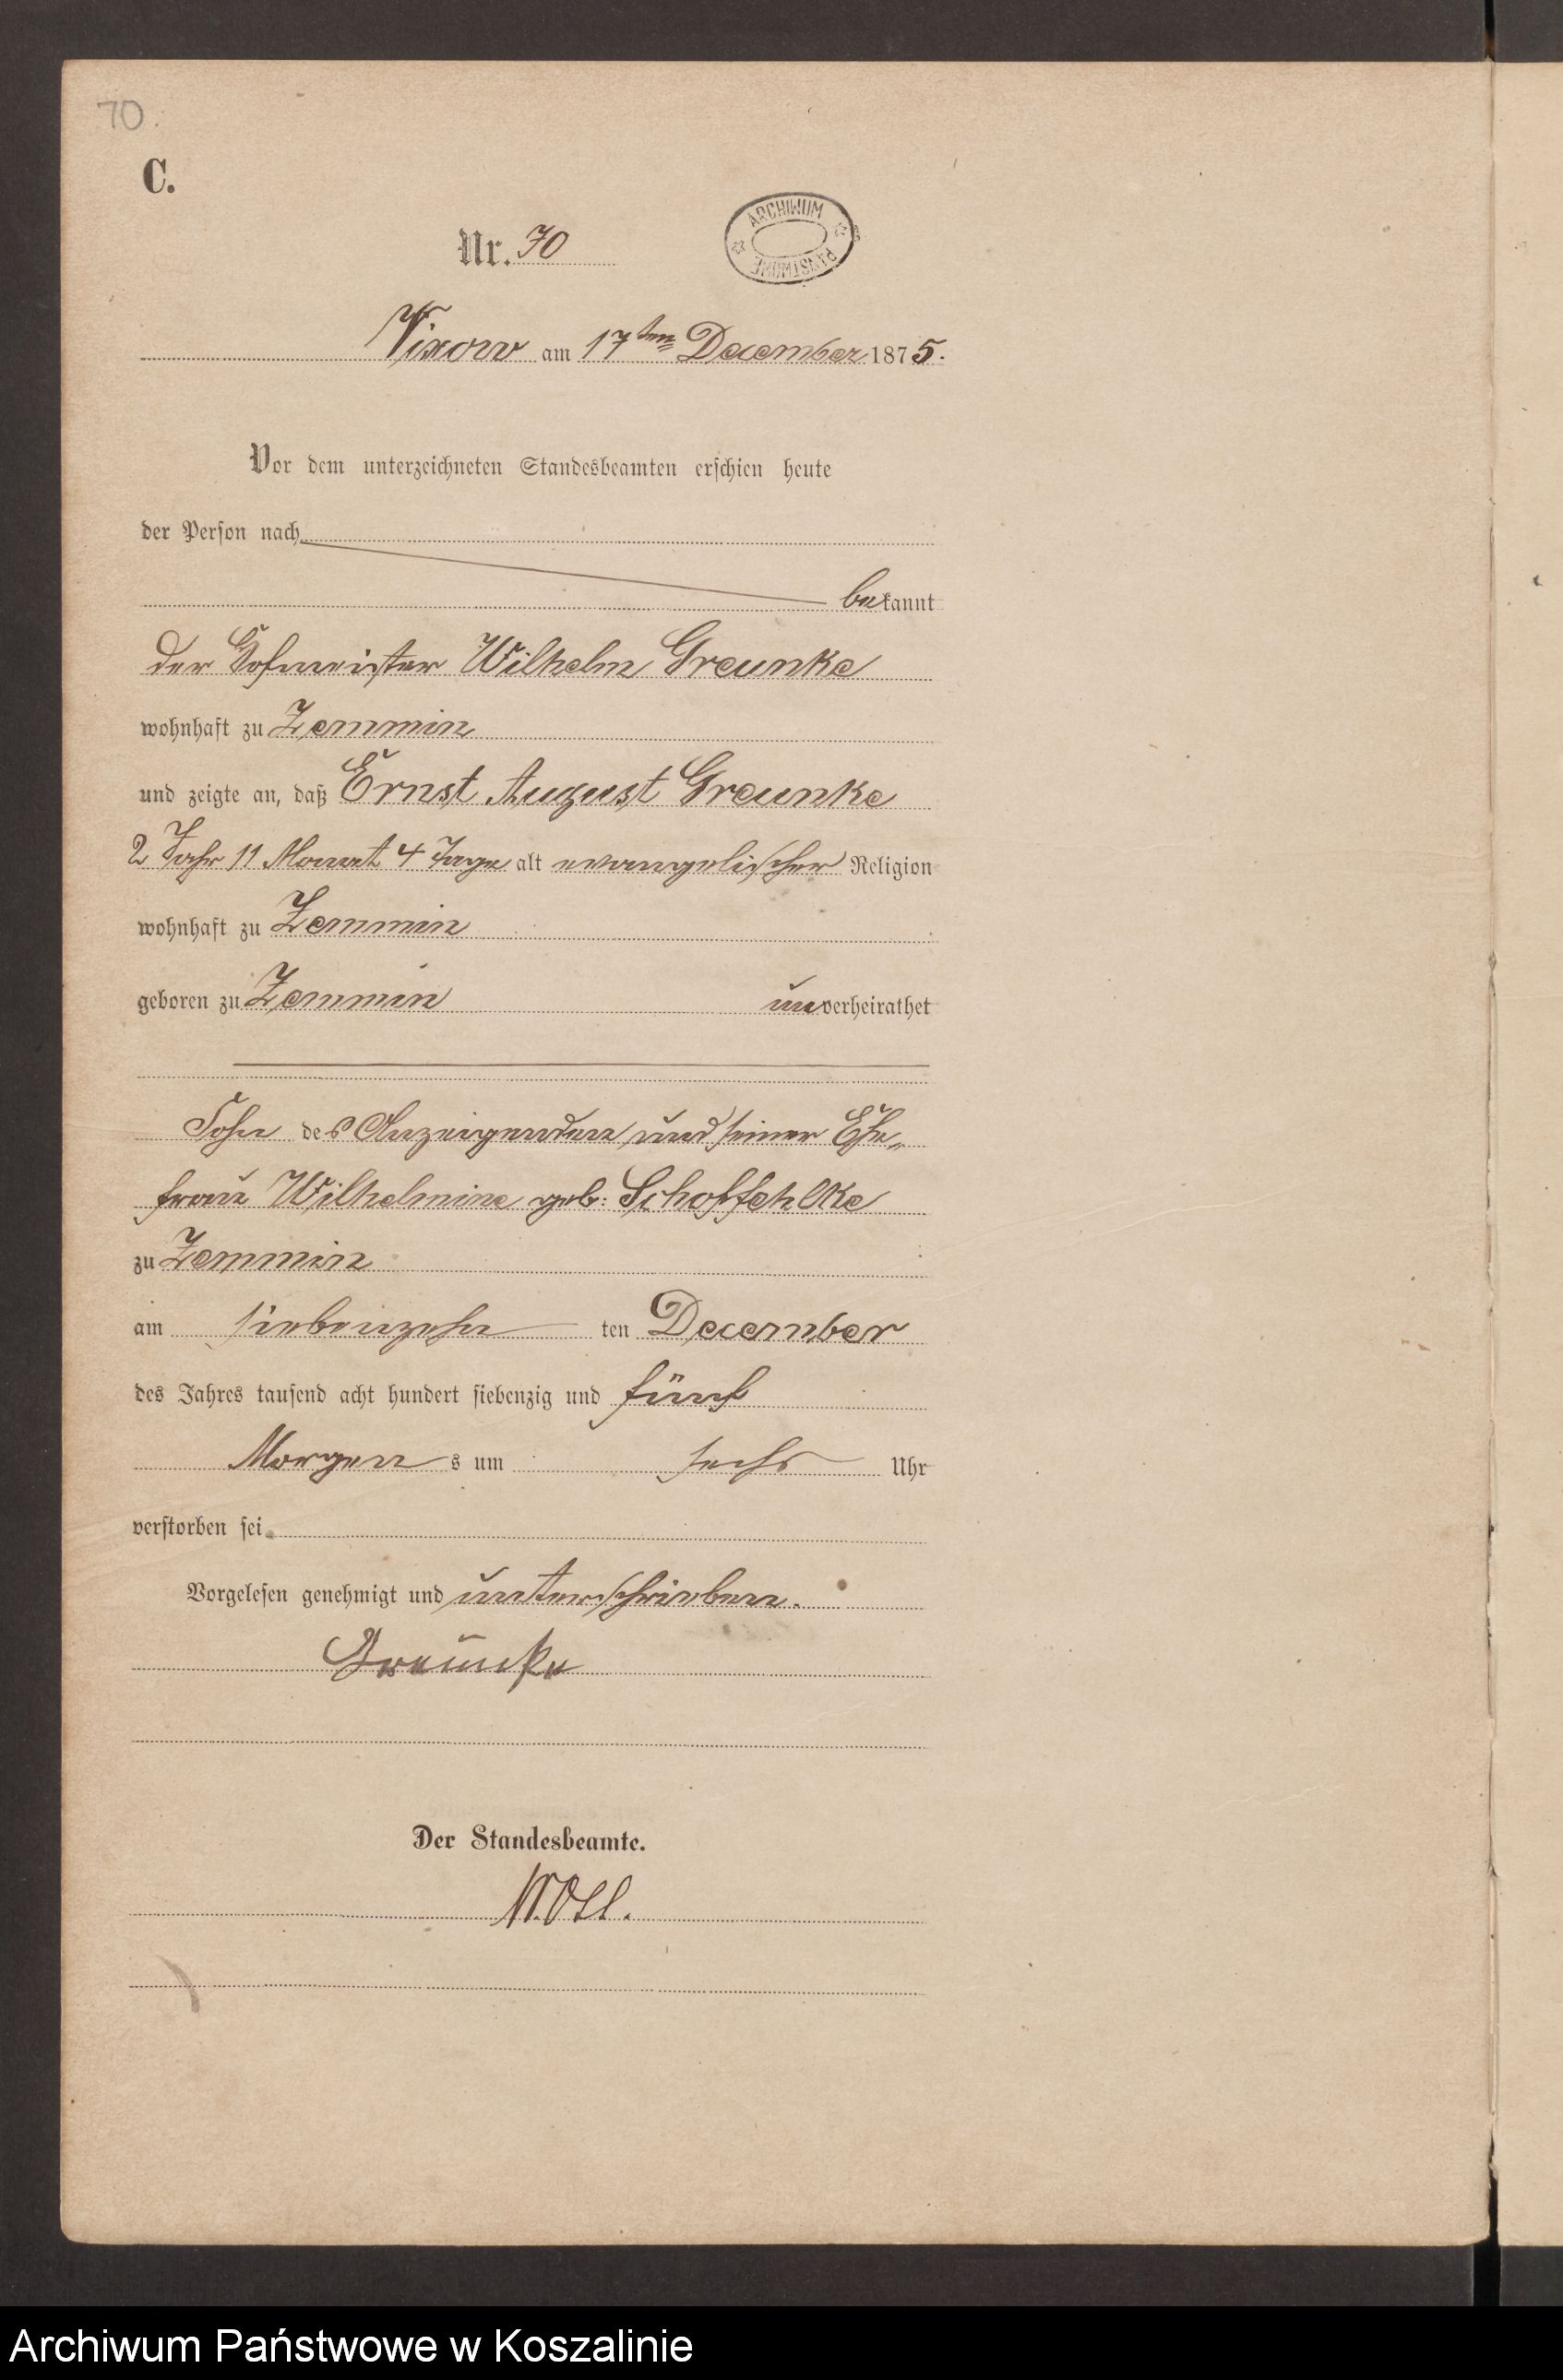 70.
C.
Nr. 70
ARCHIWUM PAŃSTWOWE
Vixow am 17ten December 1875.
Vor dem unterzeichneten Standesbeamten erschien heute
der Person nach
bekannt
der Hofmeister Wilhelm Greunke
wohnhaft zu Zemmin
und zeigte an, daß Ernst August Greunke
2 Jahr 11 Monat 4 Tage alt evangelischer Religion
wohnhaft zu Zemmin
geboren zu Zemmin unverheirathet
Sohn des Anzeigenden und seiner Ehe-
frau Wilhelmine geb: Schoffehlke
zu Zemmin
am siebenzehn ten December
des Jahres tausend acht hundert siebenzig und fünf
Morgen s um sechs Uhr
verstorben sei.
Vorgelesen genehmigt und unterschrieben.
Greunke
Der Standesbeamte.
Archiwum Państwowe w Koszalinie